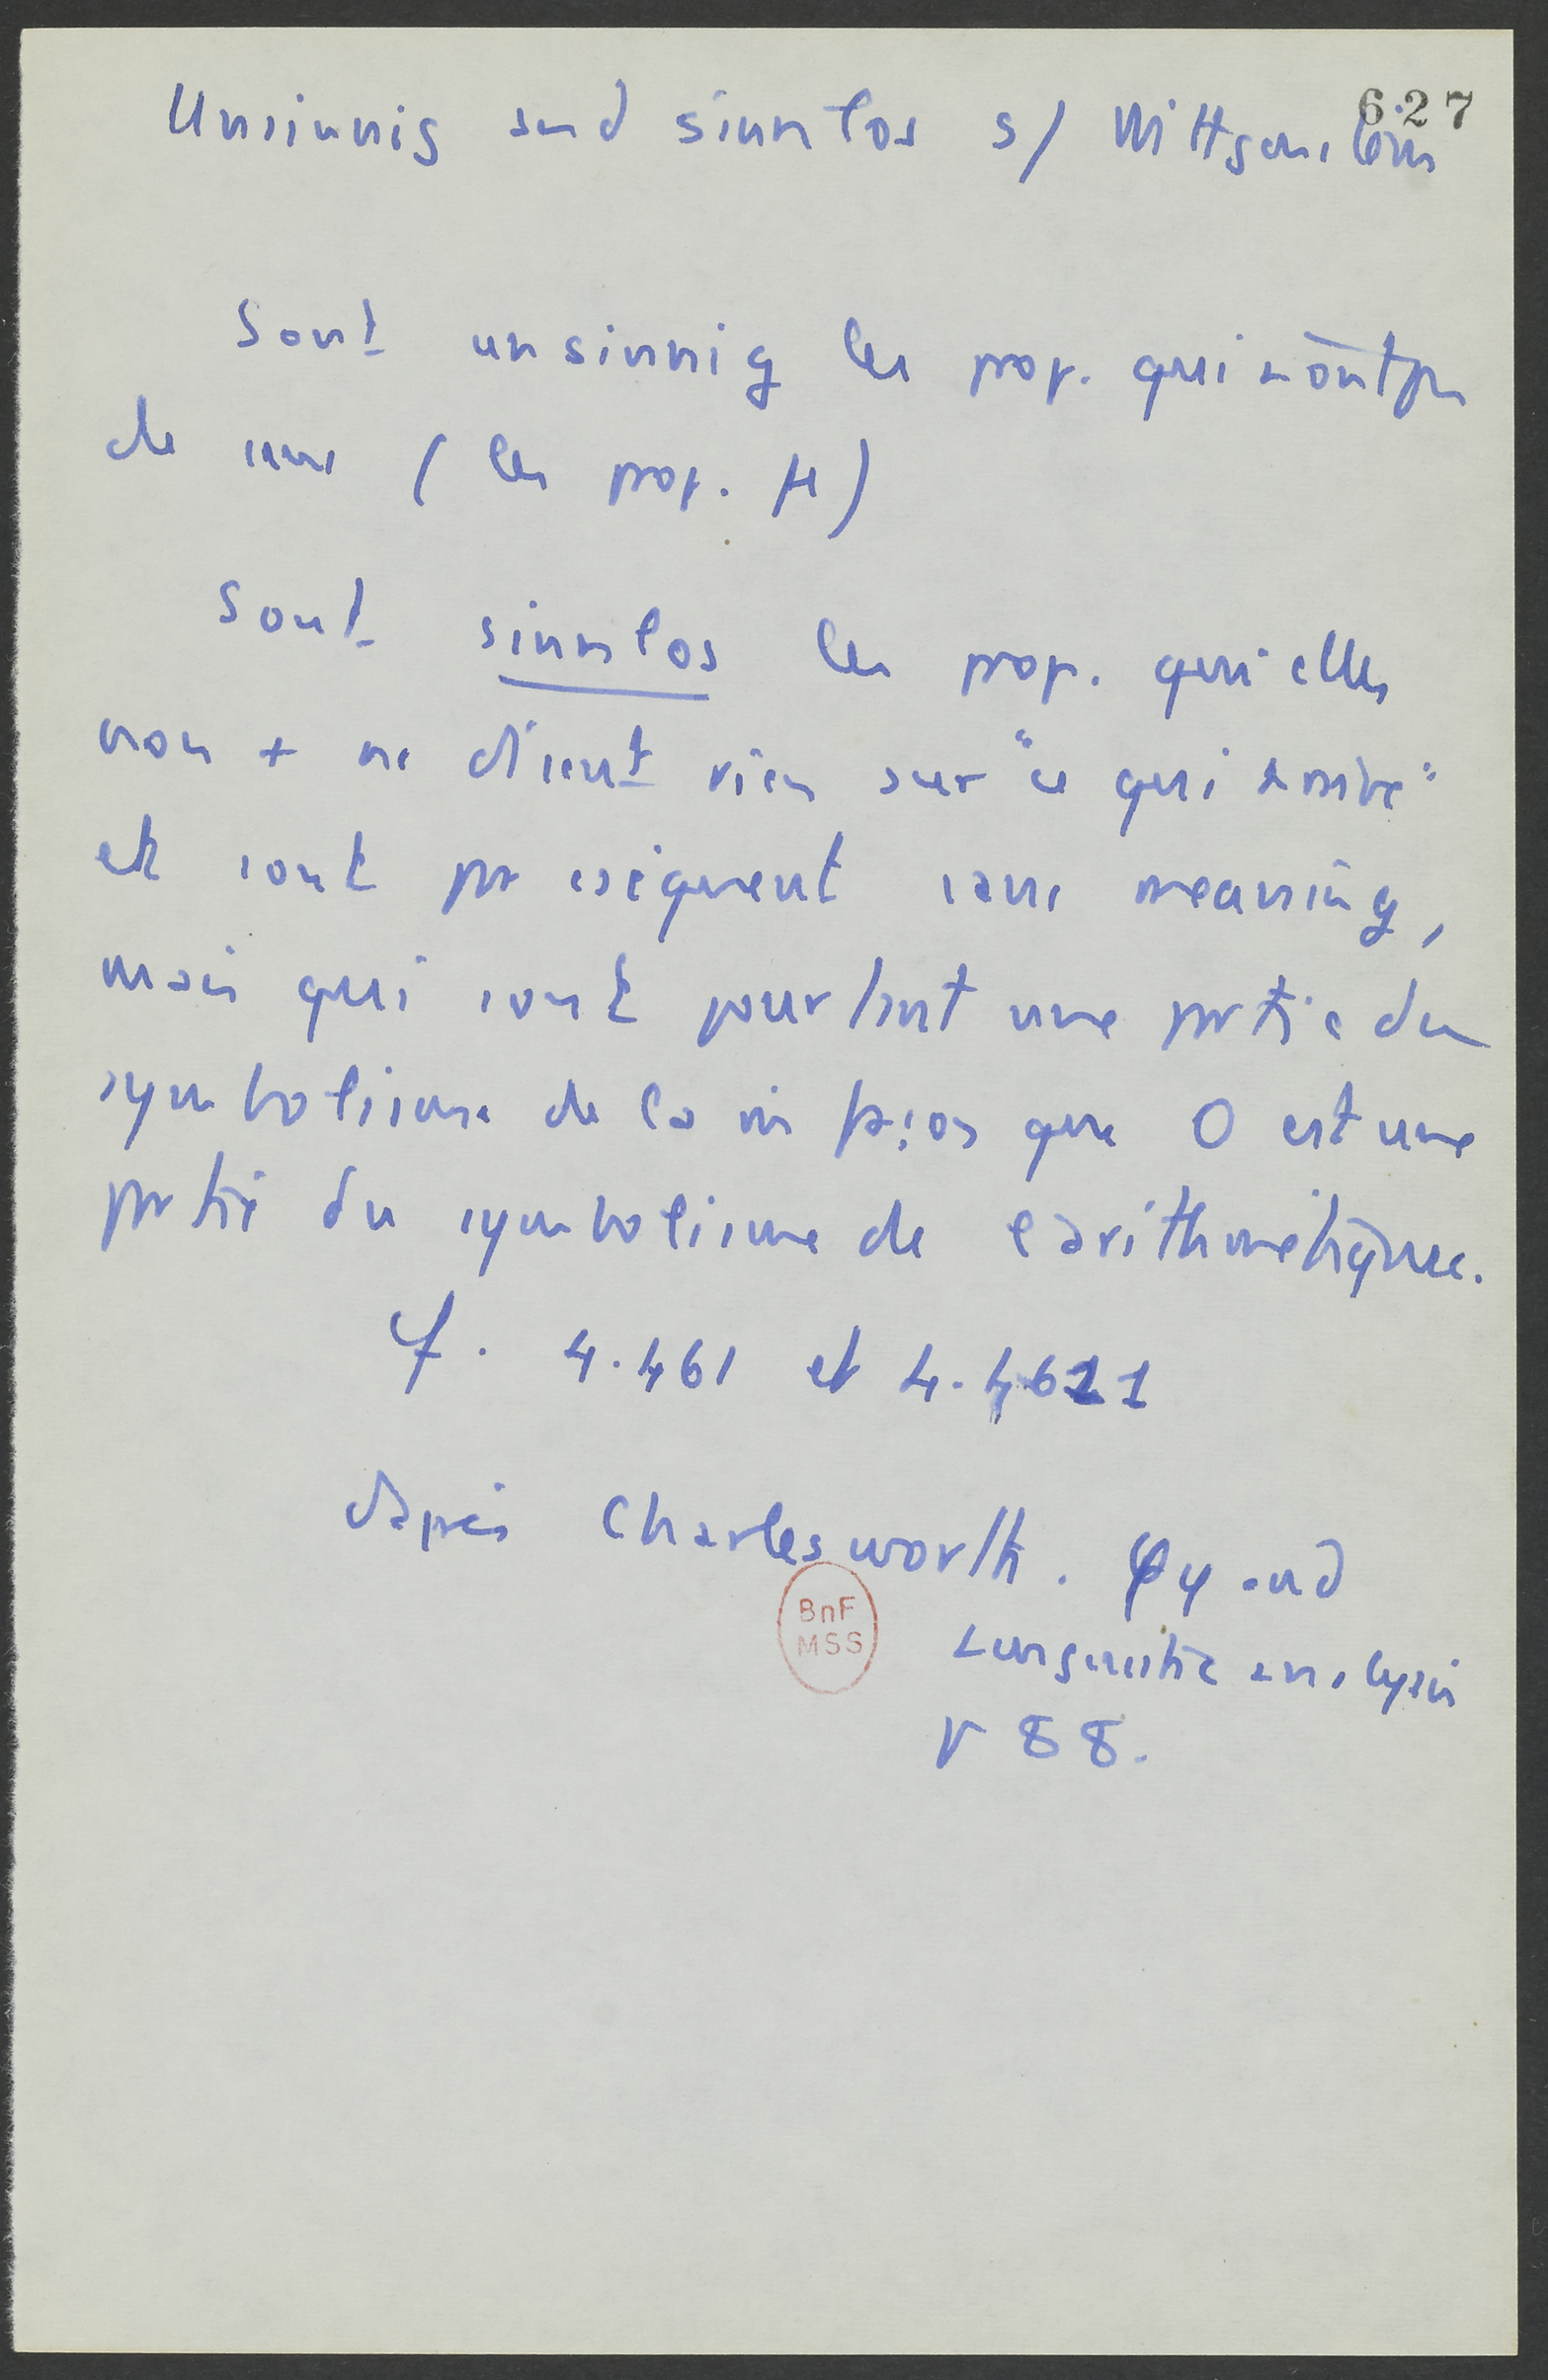 627
Unsinnig und sinnlos s/ Wittgenstein
Sont unsinnig les prop. qui n'ont pas
de sens (les prop. M)
Sont sinnlos les prop. qui elles
non + ne disent rien sur "ce qui arrive"
et sont par cséquent sans meaning,
mais qui sont pourtant une partie du
symbolisme de la m façon que 0 est une
partie du symbolisme de l'arithmétique.
Cf. 4.461 et 4.4611
d'après Charlesworth. φy and
Linguistic analysis
p 88.
BnF
MSS